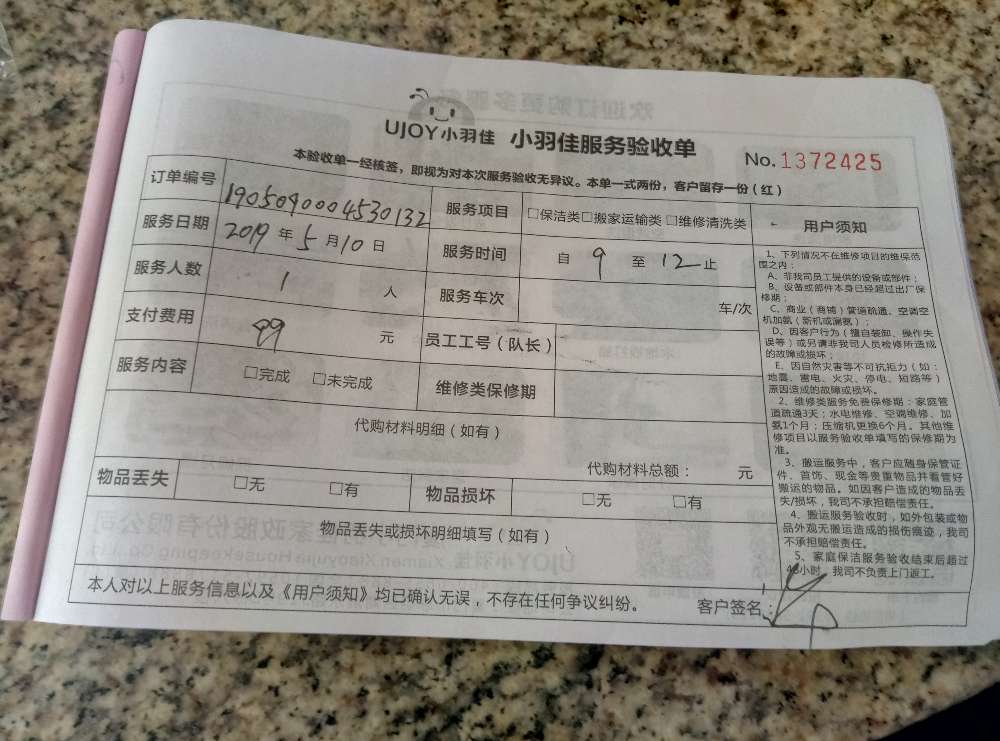 UJOY小羽佳 小羽佳服务验收单
No.1372425
本验收单一经核签，即视为对本次服务验收无异议。本单一式两份，客户留存一份（红）
订单编号 1905090004530132 服务项目 □保洁类□搬家运输类□维修清洗类
服务日期 2019年5月10日 服务时间 自 9 至 12止
服务人数 1 人 服务车次 车/次
支付费用 99 元 员工工号（队长）
服务内容 □完成 □未完成 维修类保修期
代购材料明细（如有）
代购材料总额： 元
物品丢失 □无 □有 物品损坏 □无 □有
物品丢失或损坏明细填写（如有）
本人对以上服务信息以及《用户须知》均已确认无误，不存在任何争议纠纷。 客户签名：
用户须知
1、下列情况不在维修项目的维保范
围之内：
A、非我司员工提供的设备或部件；
B、设备或部件本身已经超过出厂保
修期；
C、商业（商铺）管道疏通、空调空
机加氨（新机或漏氨）；
D、因客户行为（擅自装卸、操作失
误等）或另请非我司人员检修所造成
的故障或损坏；
E、因自然灾害等不可抗拒力（如：
地震、雷电、火灾、停电、短路等）
原因造成的故障或损坏。
2、维修类服务免费保修期：家庭管
道疏通3天；水电维修、空调维修、加
氨1个月；压缩机更换6个月。其他维
修项目以服务验收单填写的保修期为
准。
3、搬运服务中，客户应随身保管证
件、首饰、现金等贵重物品并看管好
搬运的物品。如因客户造成的物品丢
失/损坏，我司不承担赔偿责任。
4、搬运服务验收时，如外包装或物
品外观无搬运造成的损伤痕迹，我司
不承担赔偿责任。
5、家庭保洁服务验收结束后超过
48小时，我司不负责上门返工。